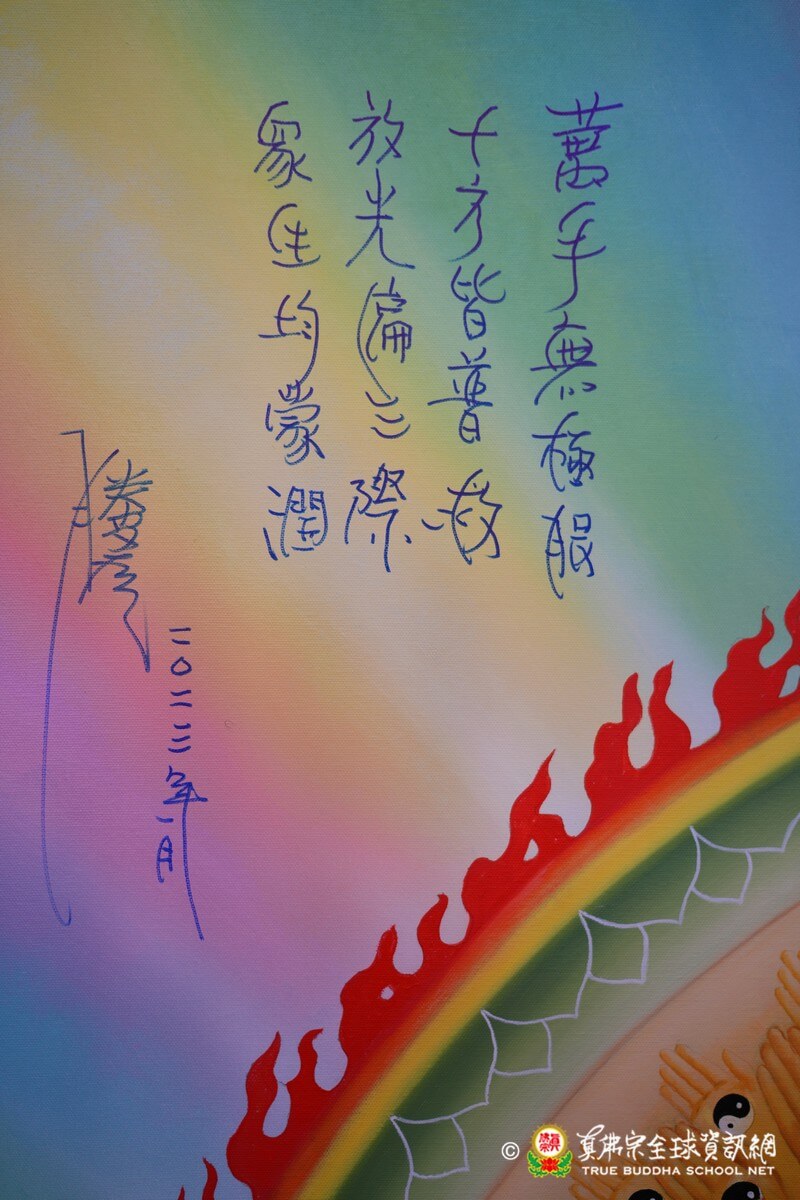 萬手無極眼
十方皆普救
放光徧三際
眾生均蒙潤
勝彥
二〇二二年一月
© 真佛宗全球資訊網
TRUE BUDDHA SCHOOL NET